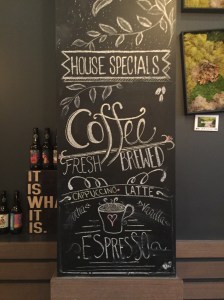 HOUSE SPECIALS
Coffee
FRESH BREWED
CAPPUCCINO LATTE
Vanilla
ESPRESSO
IT
IS
WHAT
IT
IS.